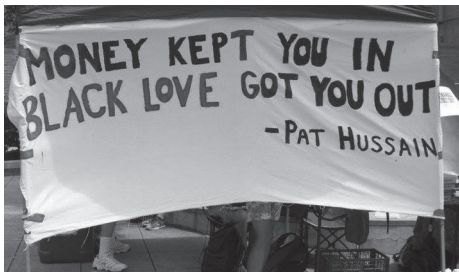 MONEY KEPT YOU IN
BLACK LOVE GOT YOU OUT
-PAT HUSSAIN